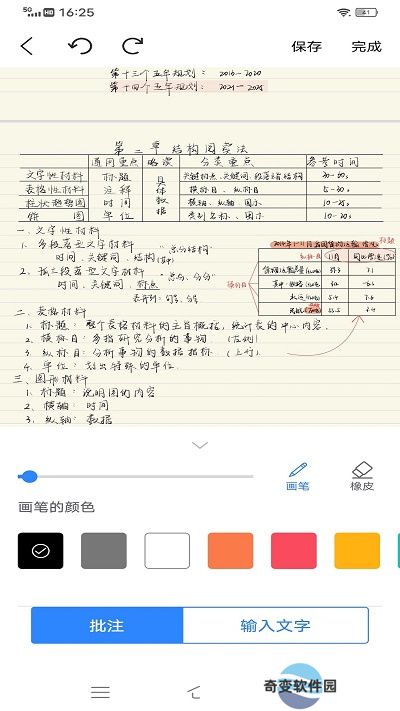 5G HD 16:25 41
保存 完成
第十三个五年规划： 2016—2020
第十四个五年规划： 2021—2025
第二章 结构阅读法
通用重点 略读 分类重点 参考时间
文字性材料 标题 具体数据 关键句点、关键词、段落与结构 20-60s
表格性材料 注释 横标目、纵标目 5-30s
柱状趋势图 时间 横轴、纵轴、图示 10-25s
饼 图 单位 类别名称、图示 10-20s
一、文字性材料
1、多段落型文字材料 "总分结构"
时间、关键词、结构
2、孤立段落型文字材料 "总分、分分"
时间、关键词、标点
二、表格材料
1、标题：整个表格材料的主旨概括，统计表的中心内容．
2、横标目：多指研究分析的事物．（左侧）
3、纵标目：分析事物的数据指标．（上方）
4、单位：划出特殊的单位．
标题
纵标目
横标目
三、图形材料
1、标题：说明图的内容
2、横轴：时间
3、纵轴：数据
画笔 橡皮
画笔的颜色
批注 输入文字
奇变软件园